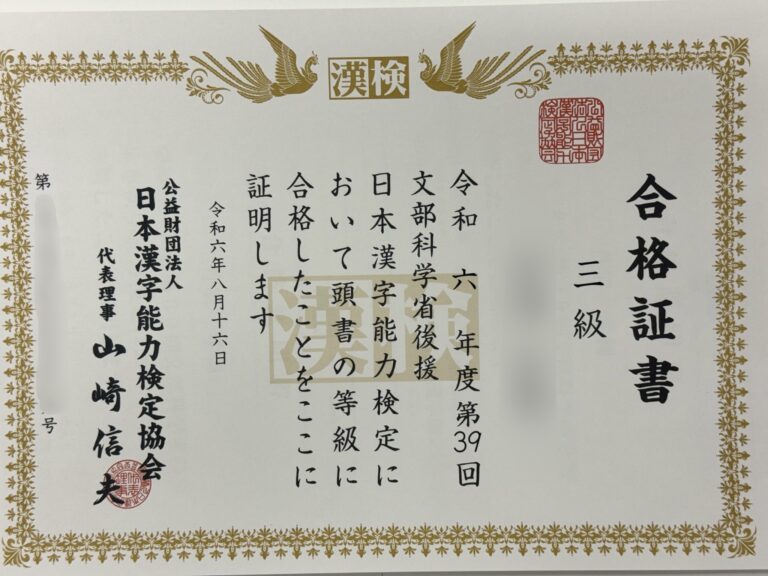 漢検
合格証書
三級
令和 六 年度第39回
文部科学省後援
日本漢字能力検定に
おいて頭書の等級に
合格したことをここに
証明します
令和六年八月十六日
公益財団法人
日本漢字能力検定協会
代表理事 山崎信夫
第 号
漢検